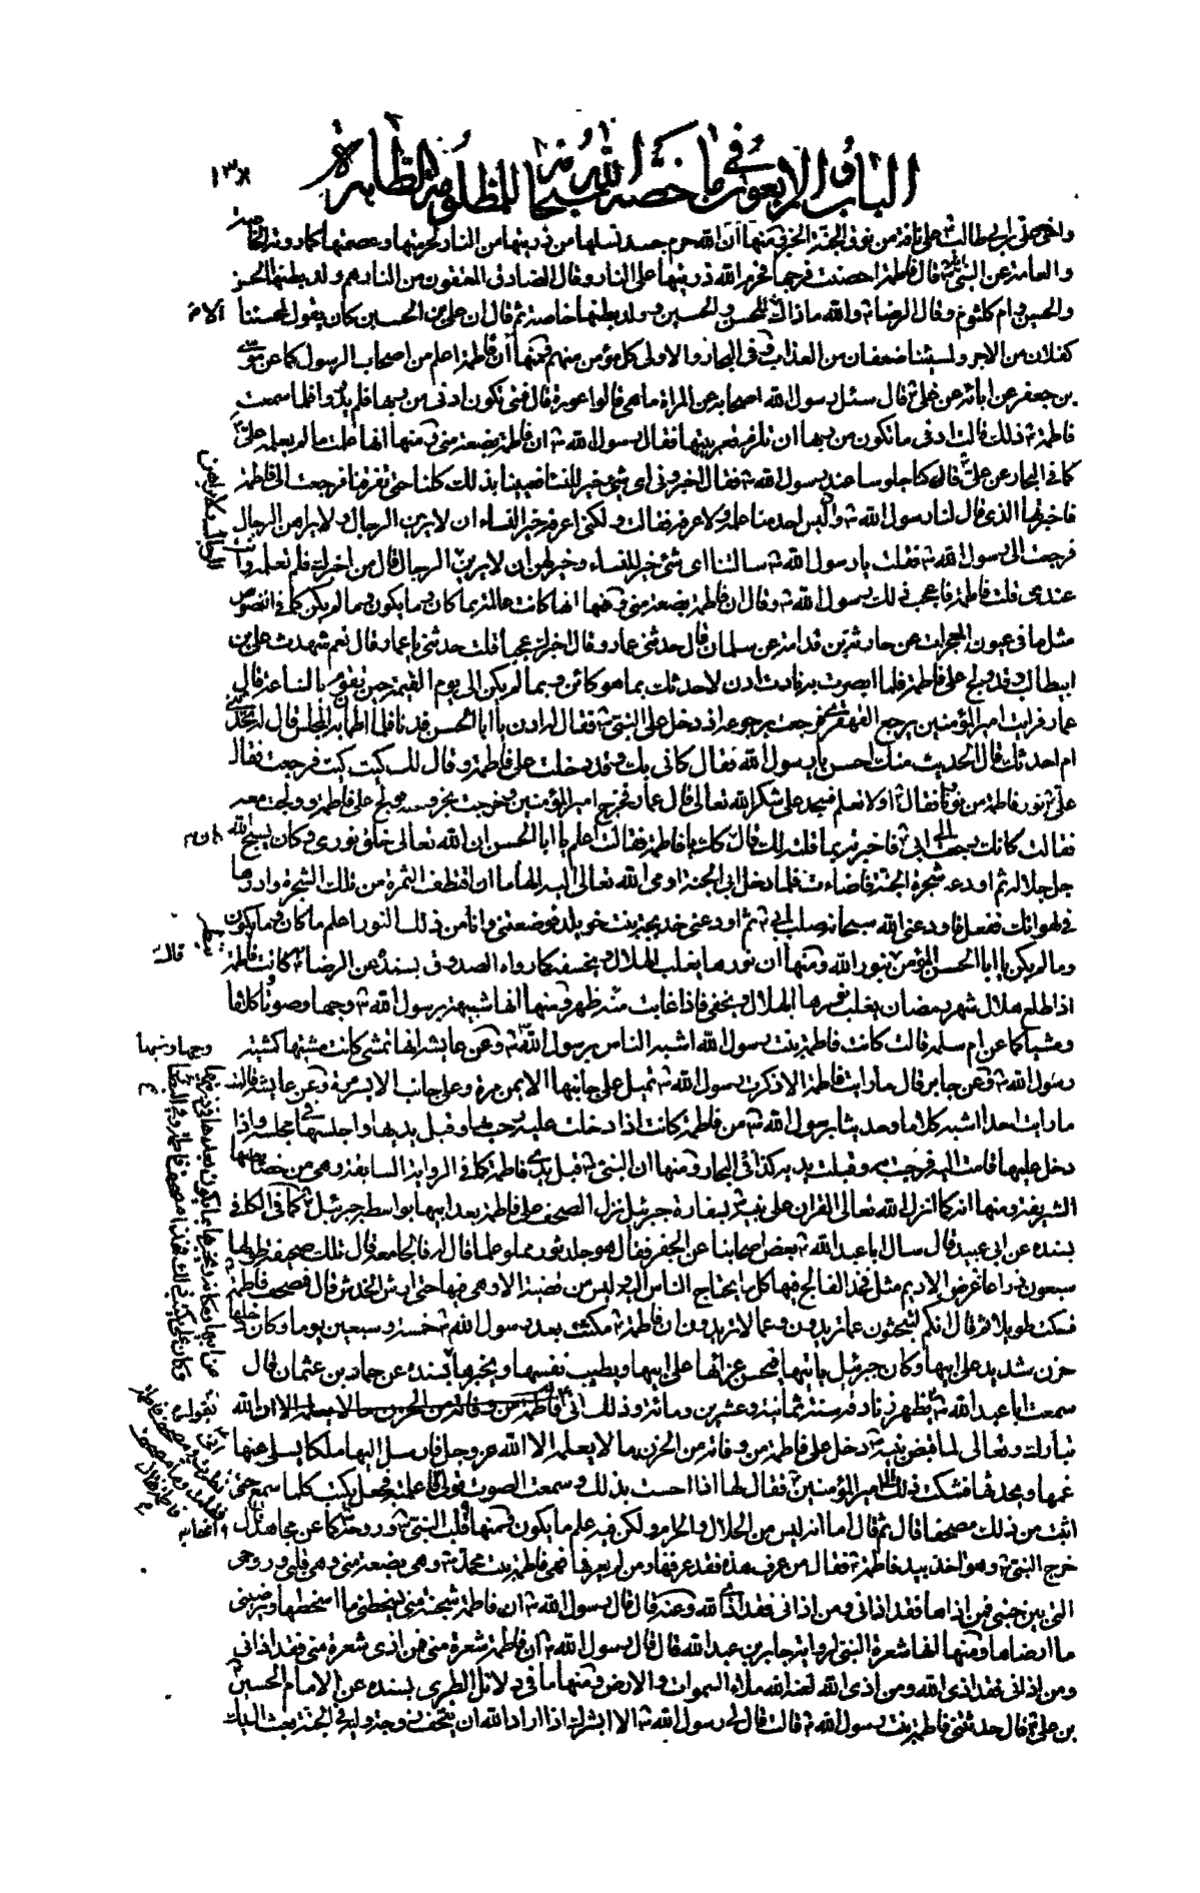 الباب الاربعون في ما خصه الله سبحانه للمظلومة الطاهرة
١٣٨
واخي علي بن ابيطالب على ناقة من نوق الجنة الخ ومنها ان الله حرم جسد نسلها من ذريتها من النار لحرمتها وعصمتها كما روته الخاصة
والعامة عن النبي قال فاطمة احصنت فرجها فحرم الله ذريتها على النار وقال الصادق المعتقون من النار هم ولد بطنها الحسن
والحسين وام كلثوم وقال الرضا والله ما ذاك الا للحسن والحسين ولد بطنها خاصة ثم قال ان علي بن الحسين كان يقول لمحسننا
كفلان من الاجر ولمسيئنا ضعفان من العذاب وفي البحار والاولى كل مؤمن منهم ومنها ان فاطمة اعلم من اصحاب الرسول كما عن موسى
بن جعفر عن ابائه عن علي قال سئل رسول الله اصحابه عن المراة ما هي قالوا عورة قال فمتى تكون ادنى من ربها فلم يدروا فلما سمعت
فاطمة ذلك قالت ادنى ما تكون من ربها ان تلزم قعر بيتها فقال رسول الله ان فاطمة بضعة مني ومنها انها علمت ما لم يعلمه علي
كما في البحار عن علي قال كنا جلوسا عند رسول الله فقال اخبروني اي شئ خير للنساء فعيينا بذلك كلنا حتى تفرقنا فرجعت الى فاطمة
فاخبرتها الذي قال لنا رسول الله وليس احد منا علمه ولا عرفه فقالت ولكني اعرفه خير للنساء ان لا يرين الرجال ولا يراهن الرجال
فرجعت الى رسول الله فقلت يا رسول الله سالتنا اي شئ خير للنساء وخير لهن ان لا يرين الرجال قال من اخبرك فلم تعلمه وانت
عندي قلت فاطمة فاعجب ذلك رسول الله وقال ان فاطمة بضعة مني ومنها انها كانت عالمة بما كان وبما يكون وبما لم يكن كما في النصوص
مثل ما في عيون المعجزات عن حارثة بن قدامة عن سلمان قال حدثني عمار وقال اخبرك عجبا قلت حدثني يا عمار قال نعم شهدت علي بن
ابيطالب وقد ولج على فاطمة فلما ابصرت به نادت ادن لاحدثك بما هو كائن وبما لم يكن الى يوم القيمة حين تقوم الساعة قال
عمار فرايت امير المؤمنين يرجع القهقرى فرجعت برجوعه اذ دخل على النبي فقال له ادن يا ابا الحسن فدنا فلما اطمان به المجلس قال له تحدثني
ام احدثك قال الحديث منك احسن يا رسول الله فقال كاني بك وقد دخلت على فاطمة وقال لك كيت كيت فرجعت فقال
علي نور فاطمة من نورنا فقال اولا تعلم فسجد علي شكرا لله تعالى قال عمار فخرج امير المؤمنين وخرجت بخروجه فولج على فاطمة وولجت معه
فقالت كانك رجعت الى ابي فاخبرته بما قلته لك قال كان يا فاطمة فقالت اعلم يا ابا الحسن ان الله تعالى خلق نوري وكان يسبح الله
جل جلاله ثم اودعه شجرة الجنة فاضاءت فلما دخل ابي الجنة اوحى الله تعالى اليه الهاما ان اقتطف الثمرة من تلك الشجرة وادرها
في لهواتك ففعل فاودعني الله سبحانه صلب ابي ثم اودعني خديجة بنت خويلد فوضعتني وانا من ذلك النور اعلم ما كان وما يكون
وما لم يكن يا ابا الحسن المؤمن ينظر بنور الله ومنها ان نورها يغلب الهلال ويخسفه كما رواه الصدوق بسنده عن الرضا قال كانت فاطمة
اذا طلع هلال شهر رمضان يغلب نورها الهلال ويخفى فاذا غابت عنه ظهر ومنها انها شبيهة برسول الله وجها وصوتا وكلاما
ومشيا كما عن ام سلمة قالت كانت فاطمة بنت رسول الله اشبه الناس برسول الله وجها وشبها وعن عايشة انها تمشي كانت مشيتها كمشية
رسول الله وعن جابر قال ما رايت فاطمة الا ذكرت رسول الله تميل على جانبها الايمن مرة وعلى جانب الايسر مرة وعن عايشة قالت
ما رايت احدا اشبه كلاما وحديثا برسول الله من فاطمة كانت اذا دخلت عليه رحب بها وقبل يديها واجلسها في مجلسه واذا
دخل عليها قامت اليه فرحبت به وقبلت يديه كذا في البحار ومنها ان النبي قبل يدي فاطمة كما في الرواية السابقة وهي من خصائصها
الشريفة ومنها انه كما انزل الله تعالى القران على نبيه بسفارة جبرئيل نزل الصحف على فاطمة بعد ابيها بواسطة جبرئيل كما في الكافي
بسنده عن ابي عبيدة قال سال ابا عبد الله بعض اصحابنا عن الجفر فقال هو جلد ثور مملو علما قال له فالجامعة قال تلك صحيفة طولها
سبعون ذراعا عرض الاديم مثل فخذ الفالج فيها كل ما يحتاج الناس اليه وليس من قضية الا وهي فيها حتى ارش الخدش قال فمصحف فاطمة
فسكت طويلا ثم قال انكم لتبحثون عما تريدون وعما لا تريدون ان فاطمة مكثت بعد رسول الله خمسة وسبعين يوما وكان دخلها
حزن شديد على ابيها وكان جبرئيل ياتيها فيحسن عزائها على ابيها ويطيب نفسها ويخبرها بسنده عن حماد بن عثمان قال
سمعت ابا عبد الله تظهر الزنادقة سنة ثمانية وعشرين ومائة وذلك اني
تبارك وتعالى لما قبض نبيه دخل على فاطمة من وفاته من الحزن ما لا يعلمه الا الله عز وجل فارسل اليها ملكا يسلي عنها
غمها ويحدثها فشكت ذلك الى امير المؤمنين فقال لها اذا احسست بذلك وسمعت الصوت قولي لي فاعلمته فجعل يكتب كلما سمع حتى
اثبت من ذلك مصحفا قال ثم قال اما انه ليس من الحلال والحرام ولكن فيه علم ما يكون ومنها انها قلب النبي وروحه كما عن مجاهد قال
خرج النبي وهو اخذ بيد فاطمة فقال من عرف هذه فقد عرفها ومن لم يعرفها فهي فاطمة بنت محمد وهي بضعة مني وهي قلبي وروحي
التي بين جنبي فمن اذاها فقد اذاني ومن اذاني فقد اذى الله وعنه قال قال رسول الله ان فاطمة شجنة مني يسخطني ما اسخطها ويرضيني
ما ارضاها ومنها انها شعرة النبي لرواية جابر بن عبد الله قال قال رسول الله ان فاطمة شعرة مني فمن اذى شعرة مني فقد اذاني
ومن اذاني فقد اذى الله ومن اذى الله لعنه الله ملاء السموات والارض ومنها ما في دلائل الطبري بسنده عن الامام الحسين
بن علي قال حدثتني فاطمة بنت رسول الله قالت قال لي رسول الله الا ابشرك اذا اراد الله ان يتحف زوجة وليه في الجنة بعث اليك